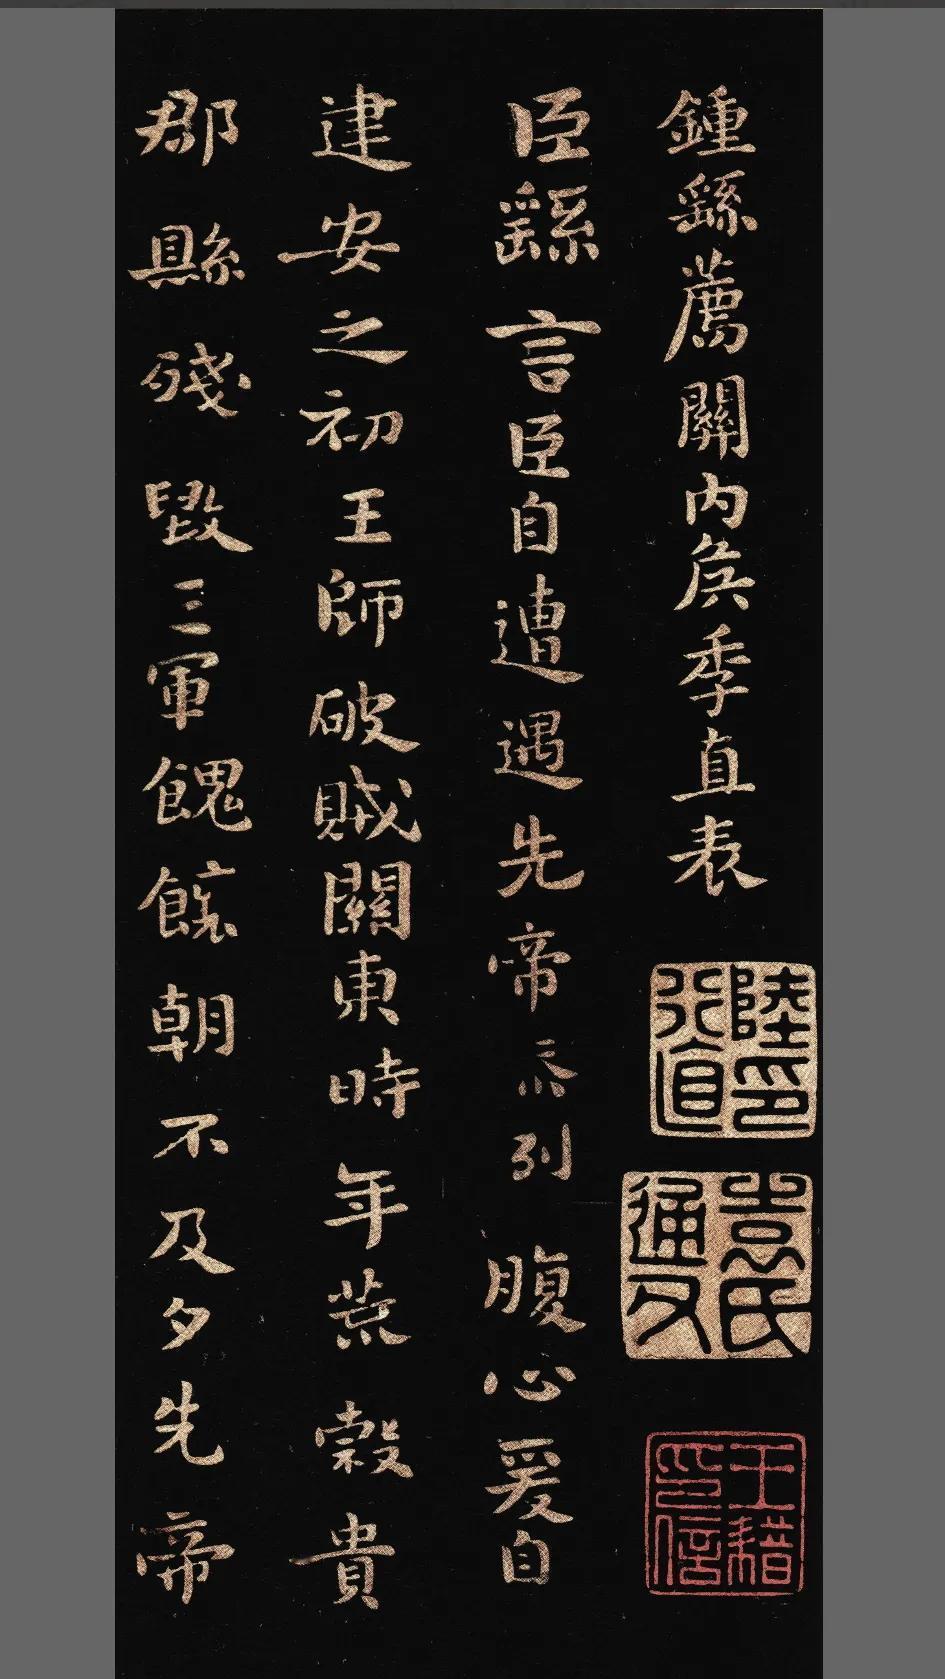 鍾繇薦關內侯季直表
陸印行直
袁氏通父
王耤印信
臣繇言臣自遭遇先帝忝列腹心爰自
建安之初王師破賊關東時年荒穀貴
郡縣殘毀三軍餽饟朝不及夕先帝